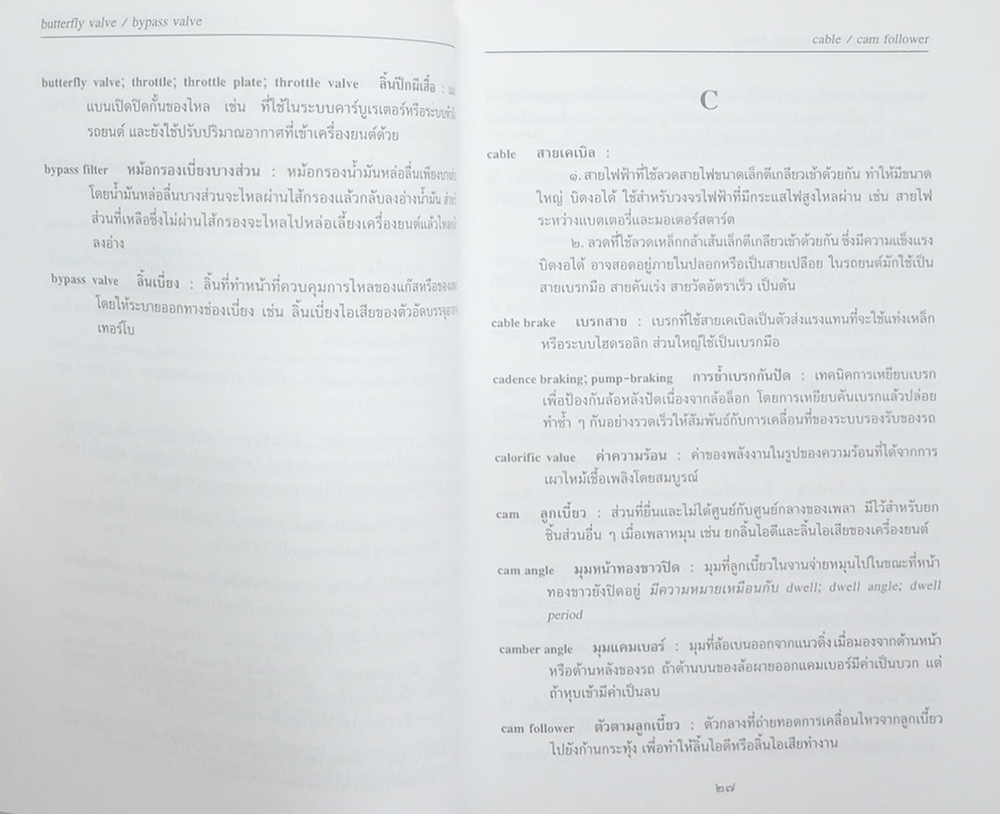 butterfly valve / bypass valve
butterfly valve; throttle; throttle plate; throttle valve ลิ้นปีกผีเสื้อ :
แบนเปิดปิดกั้นของไหล เช่น ที่ใช้ในระบบคาร์บูเรเตอร์หรือระบบ
รถยนต์ และยังใช้ปรับปริมาณอากาศที่เข้าเครื่องยนต์ด้วย
bypass filter หม้อกรองเบี่ยงบางส่วน : หม้อกรองน้ำมันหล่อลื่นเพียง
โดยน้ำมันหล่อลื่นบางส่วนจะไหลผ่านไส้กรองแล้วกลับลงอ่างน้ำมัน
ส่วนที่เหลือซึ่งไม่ผ่านไส้กรองจะไหลไปหล่อเลี้ยงเครื่องยนต์แล้ว
ลงอ่าง
bypass valve ลิ้นเบี่ยง : ลิ้นที่ทำหน้าที่ควบคุมการไหลของแก๊สหรือ
โดยให้ระบายออกทางช่องเบี่ยง เช่น ลิ้นเบี่ยงไอเสียของตัวอัดบรรจุ
เทอร์โบ
cable / cam follower
C
cable สายเคเบิล :
๑. สายไฟฟ้าที่ใช้ลวดสายไฟขนาดเล็กตีเกลียวเข้าด้วยกัน ทำให้มีขนาด
ใหญ่ บิดงอได้ ใช้สำหรับวงจรไฟฟ้าที่มีกระแสไฟสูงไหลผ่าน เช่น สายไฟ
ระหว่างแบตเตอรี่และมอเตอร์สตาร์ต
๒. ลวดที่ใช้ลวดเหล็กกล้าเส้นเล็กตีเกลียวเข้าด้วยกัน ซึ่งมีความแข็งแรง
บิดงอได้ อาจสอดอยู่ภายในปลอกหรือเป็นสายเปลือย ในรถยนต์มักใช้เป็น
สายเบรกมือ สายคันเร่ง สายวัดอัตราเร็ว เป็นต้น
cable brake เบรกสาย : เบรกที่ใช้สายเคเบิลเป็นตัวส่งแรงแทนที่จะใช้แท่งเหล็ก
หรือระบบไฮดรอลิก ส่วนใหญ่ใช้เป็นเบรกมือ
cadence braking; pump-braking การย้ำเบรกกันปัด : เทคนิคการเหยียบเบรก
เพื่อป้องกันล้อหลังปัดเนื่องจากล้อล็อก โดยการเหยียบคันเบรกแล้วปล่อย
ทำซ้ำ ๆ กันอย่างรวดเร็วให้สัมพันธ์กับการเคลื่อนที่ของระบบรองรับของรถ
calorific value ค่าความร้อน : ค่าของพลังงานในรูปของความร้อนที่ได้จากการ
เผาไหม้เชื้อเพลิงโดยสมบูรณ์
cam ลูกเบี้ยว : ส่วนที่ยื่นและไม่ได้ศูนย์กับศูนย์กลางของเพลา มีไว้สำหรับยก
ชิ้นส่วนอื่น ๆ เมื่อเพลาหมุน เช่น ยกลิ้นไอดีและลิ้นไอเสียของเครื่องยนต์
cam angle มุมหน้าทองขาวปิด : มุมที่ลูกเบี้ยวในจานจ่ายหมุนไปในขณะที่หน้า
ทองขาวยังปิดอยู่ มีความหมายเหมือนกับ dwell; dwell angle; dwell
period
camber angle มุมแคมเบอร์ : มุมที่ล้อเบนออกจากแนวดิ่ง เมื่อมองจากด้านหน้า
หรือด้านหลังของรถ ถ้าด้านบนของล้อผายออกแคมเบอร์มีค่าเป็นบวก แต่
ถ้าหุบเข้ามีค่าเป็นลบ
cam follower ตัวตามลูกเบี้ยว : ตัวกลางที่ถ่ายทอดการเคลื่อนไหวจากลูกเบี้ยว
ไปยังก้านกระทุ้ง เพื่อทำให้ลิ้นไอดีหรือลิ้นไอเสียทำงาน
๒๗